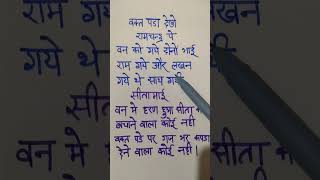 वक्त पडा देखो
रामचन्द्र पे
वन को गये दोनो भाई
राम गये और लखन
गये थे साथ गयी
सीता माई
वन मे हरण हुआ सीता
बचाने वाला कोई नही
वक्त पडे पर गज भर कपडा
देने वाला कोई नही